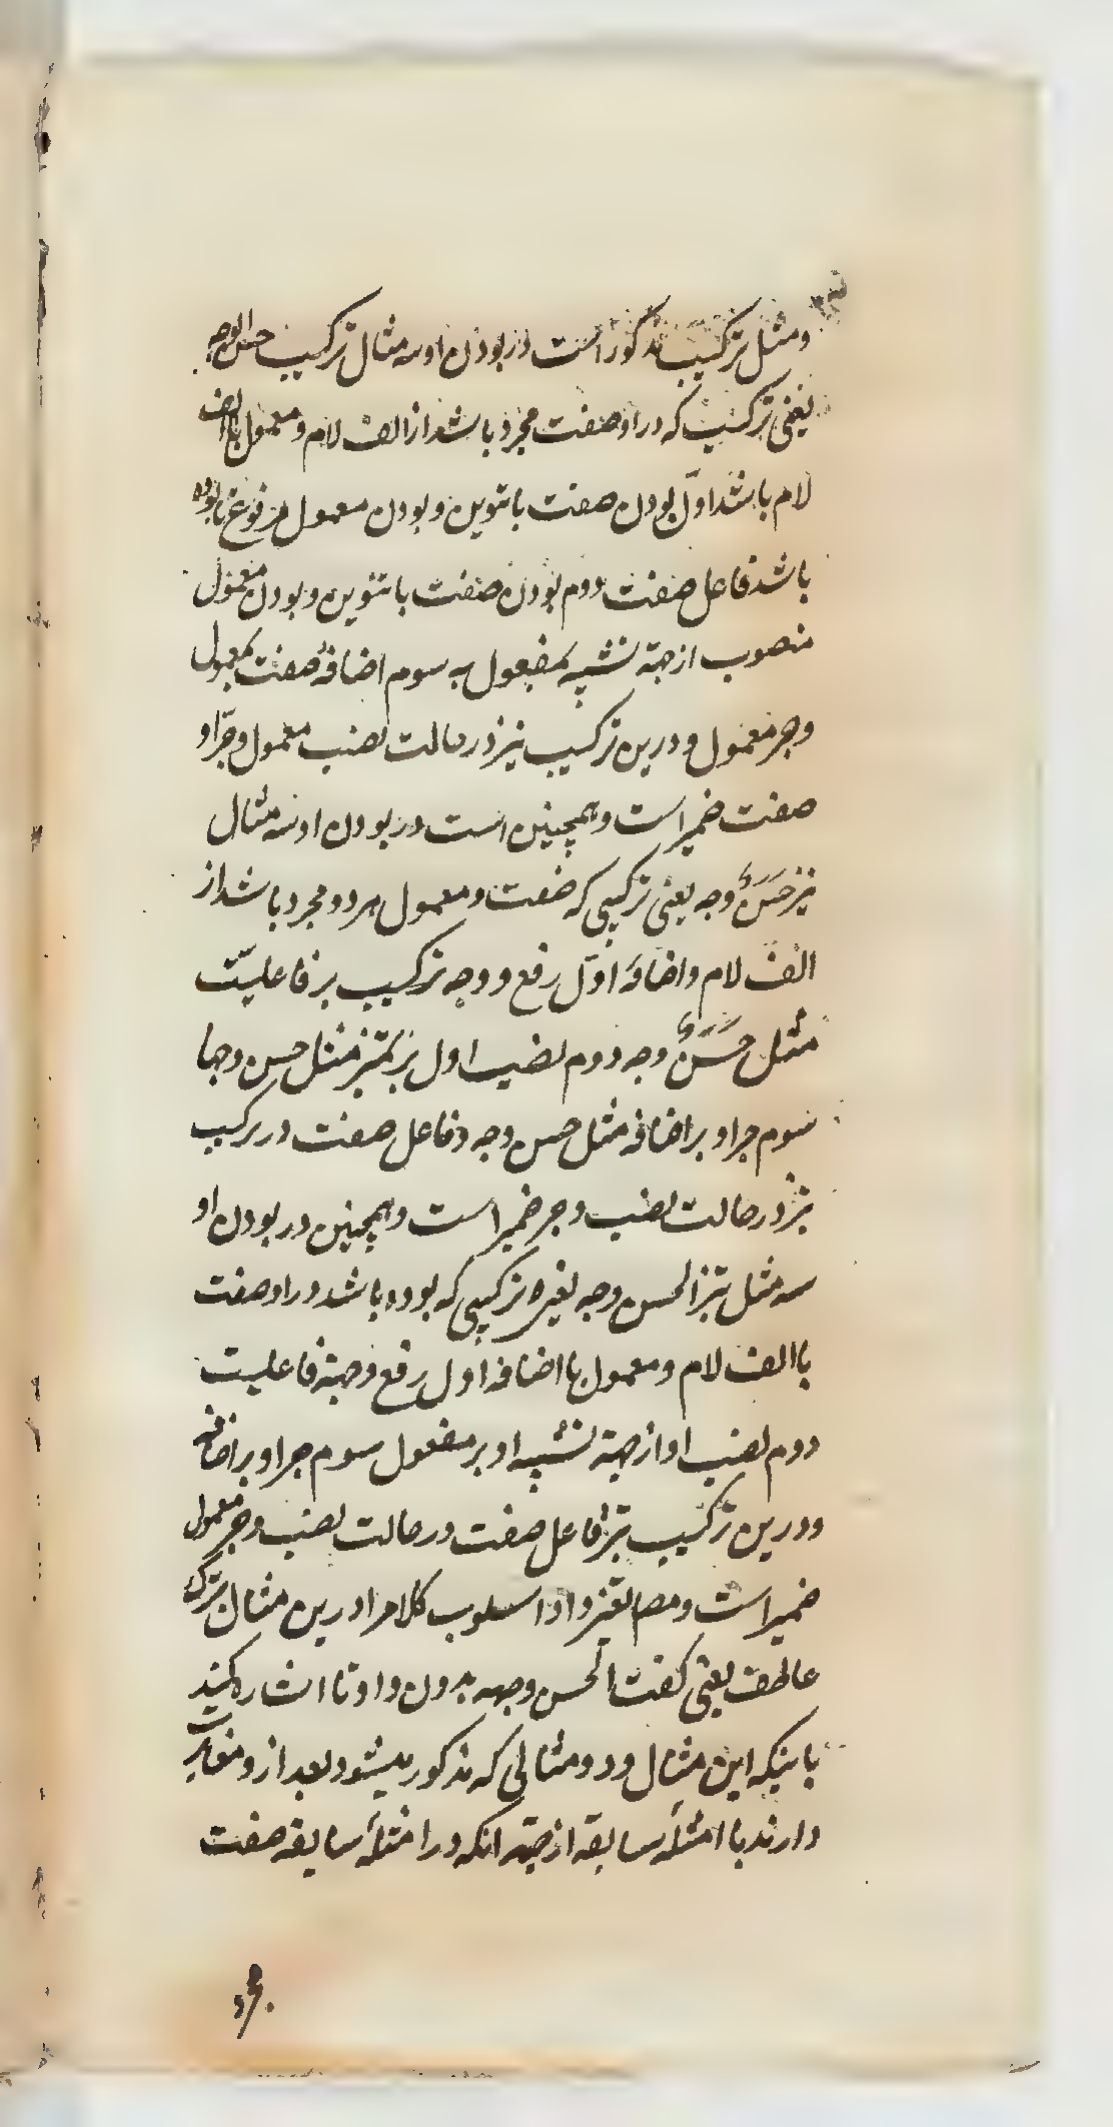 ومثل ترکیب مذکور است در بودن او سه مثال ترکیب حسن الوجه
یعنی ترکیب که در او صفت مجرد باشد از الف لام و معمول با الف
لام باشد اوّل بودن صفت با تنوین و بودن معمول مرفوع تا بوده
باشد فاعل صفت دوم بودن صفت با تنوین و بودن معمول
منصوب از جهة تشبیه بمفعول به سوم اضافهٔ صفت بمعمول
وجر معمول و درین ترکیب نیز در حالت نصب معمول و جرّ او
صفت ضمیر است و همچنین است در بودن او سه مثال
نیز حَسَنٌ وجه یعنی ترکیبی که صفت و معمول هر دو مجرد باشد از
الف لام و اضافه اوّل رفع و وجه ترکیب بر فاعلیّت
مثل حَسَنٌ وجه دوم نصب اول بر تمیز مثل حسن وجها
سوم جر او بر اضافه مثل حسن وجه و فاعل صفت در ترکیب
نیز در حالت نصب و جر ضمیر است و همچنین در بودن او
سه مثل نیز الحسن وجه لغیره ترکیبی که بوده باشد در او صفت
با الف لام و معمول با اضافه اول رفع وجهة فاعلیت
دوم نصب او از جهة تشبیه او بر مفعول سوم جر او بر اضافه
ودرین ترکیب نیز فاعل صفت در حالت نصب و جر معمول
ضمیر است و مص تغیر داد اسلوب کلام را درین مثال بترک
عاطف یعنی گفت الحسن وجهه بدون واو تا اشاره کند
باینکه این مثال و دو مثالی که مذکور میشود بعد از و مغایرت
دارند با امثلهٔ سابقه از جهة آنکه در امثلهٔ سابقه صفت
مجرد